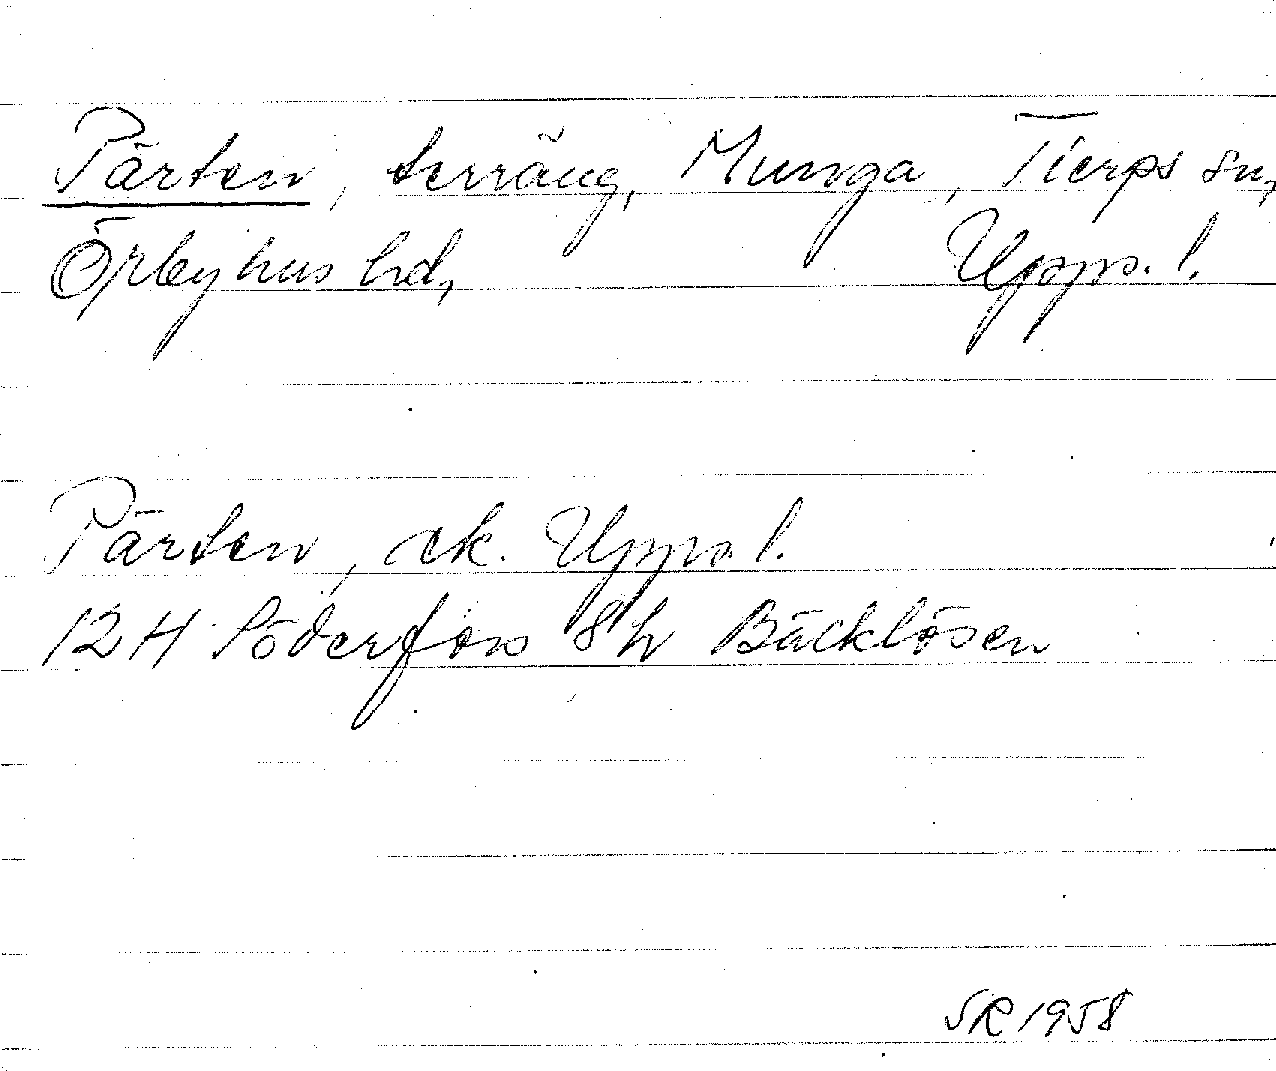 Pärten, terräng, Munga, Tierps sn,
Örbyhus hd, Upps. l.
Pärten, ek. Upps l.
12H Söderfors 8h Bäcklösen
SR 1958